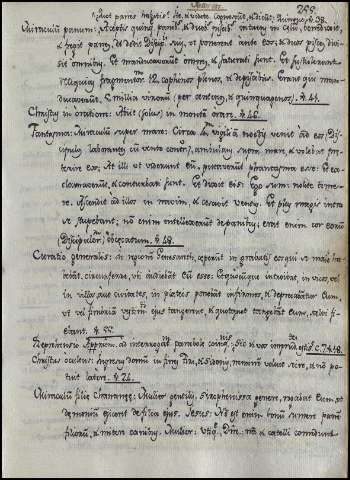 255.
quot panes habetis? Ite, & videte. Cognoverūt, & dicūt: Quinque, v. 38.
Miraculū panum: Acceptis quinq. panib. & duob. piscib. intuens in cælū, benedixit,
& fregit panes, & dedit Discip. suis, ut ponerent ante eos; & duos pisces divi-
sit omnibus. Et manducaverunt omnes, & saturati sunt. Et sustulerunt
reliquias fragmentorum 12. cophinos plenos, & de piscibus. Erant aūt qui man-
ducaverunt, 5. millia virorum (per centenos, & quinquagenos). v. 44.
Christus in oratione: Abiit (solus) in montē orare. v. 46.
Fantasma: Miraculū super mare: Circa 4. vigiliā noctis venit ad eos (Disci-
pulos laborantes cū vento contr.), ambulans supra mare, & volebat præ-
terire eos. At illi ut viderunt eū, putaverūt phantasma esse: Et ex-
clamaverūt, & conturbati sunt. Et dixit eis: Ego sum: nolite time-
re. Ascendit ad illos in navim, & cessavit ventus. Et plus magis intra
se stupebant; nō enim intellexerāt de panibus; erat enim cor eorū
(Discipulorum) obcæcatum. v. 48.
Curatio generalis: in regione Genesareth, operuit in grabatis eos qui se male ha-
bebāt, circumferre, ubi audiebāt eū esse: Et quocumque introibat, in vicos, vel
in villas aut civitates, in plateis ponebāt infirmos, & deprecabātur eum,
ut vel fimbriā vestim. ejus tangerent, & quotquot tangebāt eum, salvi fi-
ebant. v. 55.
Christus occultus: Ingressus domū in fines Tyri, & Sidonis, neminē voluit scire, & nō po-
tuit latere. v. 24.
Miraculū filiæ Chananææ: Mulier gentilis, syrophœnissa genere, rogabat eum, ut
dæmoniū ejiceret de filia ejus. Jesus: Nō est enim bonū sumere panē
filiorū, & mittere canibus. Mulier: Utiq. Dne. nā & catelli comedunt